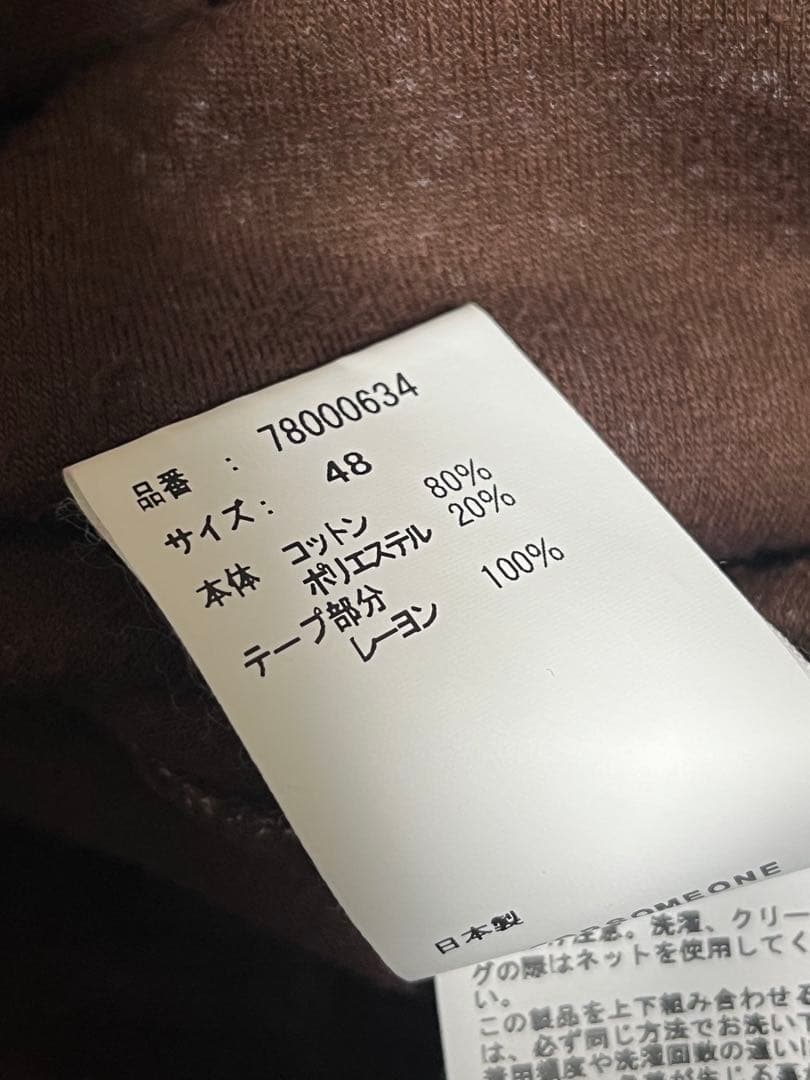 品番 : 78000634
サイズ: 48
本体 コットン 80%
ポリエステル 20%
テープ部分
レーヨン 100%
日本製
SOMEONE
注意。洗濯、クリー
グの際はネットを使用してく
い。
この製品を上下組み合わせる
は、必ず同じ方法でお洗い下
着用頻度や洗濯回数の違い